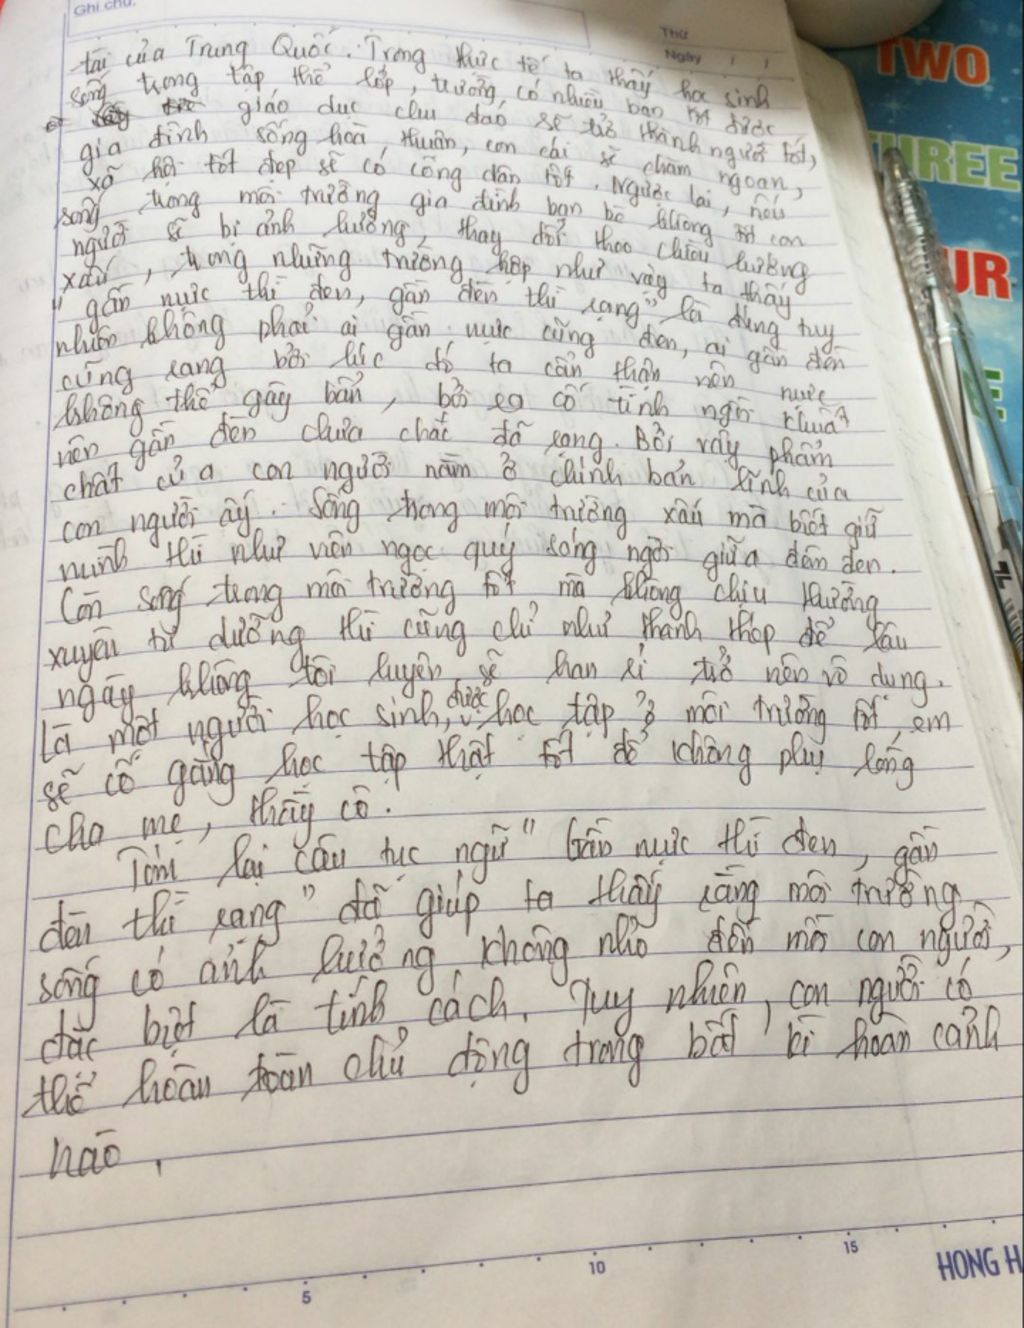 Ghi chú:
Thứ
Ngày / /
tài của Trung Quốc. Trong thực tế ta thấy học sinh
sống trong tập thể lớp, trường, có nhiều bạn tốt được
giáo dục chu đáo sẽ trở thành người tốt,
gia đình sống hoà thuận, con cái sẽ chăm ngoan,
xã hội tốt đẹp sẽ có công dân tốt. Ngược lại, nếu
sống trong môi trường gia đình bạn bè không tốt con
người sẽ bị ảnh hưởng, thay đổi theo chiều hướng
xấu, trong những trường hợp như vậy ta thấy
"gần mực thì đen, gần đèn thì rạng" là đúng tuy
nhiên không phải ai gần mực cũng đen, ai gần đèn
cũng rạng bởi lúc đó ta cẩn thận nên mực
không thể gây bẩn, bởi ta cố tình ngồi khuất
nên gần đèn chưa chắc đã rạng. Bởi vậy phẩm
chất của con người nằm ở chính bản lĩnh của
con người ấy. Sống trong môi trường xấu mà biết giữ
mình thì như viên ngọc quý sáng ngời giữa đêm đen.
Còn sống trong môi trường tốt mà không chịu thường
xuyên tu dưỡng thì cũng chỉ như thanh thép để lâu
ngày không tôi luyện sẽ han rỉ trở nên vô dụng.
Là một người học sinh, được học tập ở môi trường tốt, em
sẽ cố gắng học tập thật tốt để không phụ lòng
cha mẹ, thầy cô.
Tóm lại câu tục ngữ "Gần mực thì đen, gần
đèn thì rạng" đã giúp ta thấy rằng môi trường
sống có ảnh hưởng không nhỏ đến mỗi con người,
đặc biệt là tính cách. Tuy nhiên, con người có
thể hoàn toàn chủ động trong bất kì hoàn cảnh
nào.
5 10 15
HONG H
TWO
THREE
UR
E